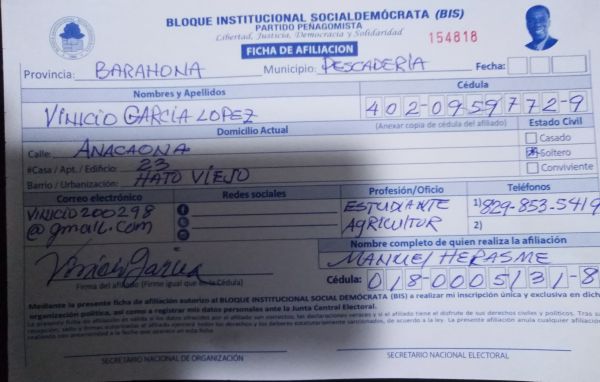 BLOQUE INSTITUCIONAL SOCIALDEMÓCRATA (BIS)
PARTIDO PEÑAGOMISTA
Libertad, Justicia, Democracia y Solidaridad
FICHA DE AFILIACION
154818
Provincia: BARAHONA Municipio: PESCADERÍA Fecha:
Nombres y Apellidos Cédula
VINICIO GARCÍA LOPEZ 402-0959772-9
Domicilio Actual (Anexar copia de cédula del afiliado) Estado Civil
Calle: ANACAONA Casado
#Casa / Apt. / Edificio: 23 Soltero
Barrio / Urbanización: HATO VIEJO Conviviente
Correo electrónico Redes sociales Profesión/Oficio Teléfonos
VINICIO200298 ESTUDIANTE 1) 829-853-5419
@gmail.com AGRICULTOR 2)
Nombre completo de quien realiza la afiliación
Vinicio García MANUEL HERASME
Firma del afiliado (Firme igual que la Cédula) Cédula: 018-0005131-8
Mediante la presente ficha de afiliación autorizo al BLOQUE INSTITUCIONAL SOCIAL DEMÓCRATA (BIS) a realizar mi inscripción única y exclusiva en dich
organización política, así como a registrar mis datos personales ante la Junta Central Electoral.
SECRETARIO NACIONAL DE ORGANIZACIÓN SECRETARIO NACIONAL ELECTORAL